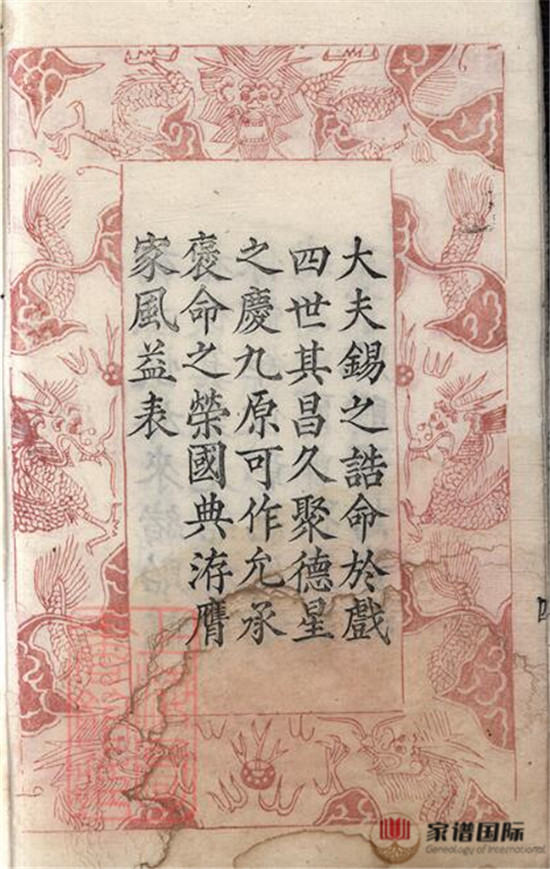 大夫錫之誥命於戲
四世其昌久聚德星
之慶九原可作允承
褒命之榮國典洊膺
家風益表
家谱国际
Genealogy of International